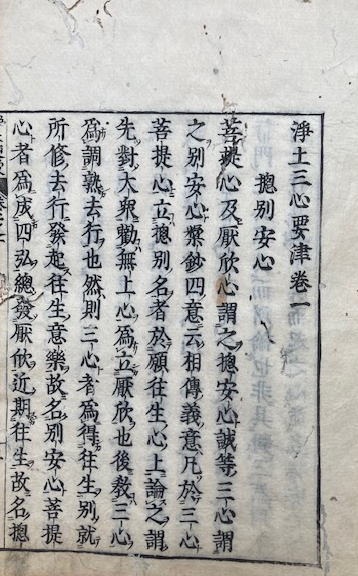 淨土三心要津卷一
摠別安心
菩提心及厭欣心謂之摠安心誠等三心謂
之別安心槩鈔四意云相傳義意凡於三心
菩提心立摠別名者於願往生心上論之謂
先對大衆勸無上心爲立厭欣也後教三心
爲調熟去行也然則三心者爲得往生別就
所修去行發起往生意樂故名別安心菩提
心者爲成四弘總發厭欣近期往生故名摠